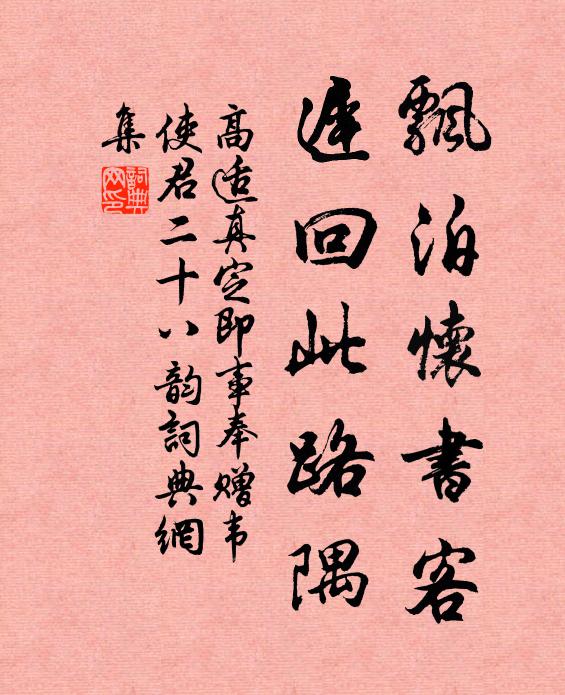 飄泊懷書客
遲回此路隅
高适真定即事奉赠韦
使君二十八韵詞典網
集
詞典網印